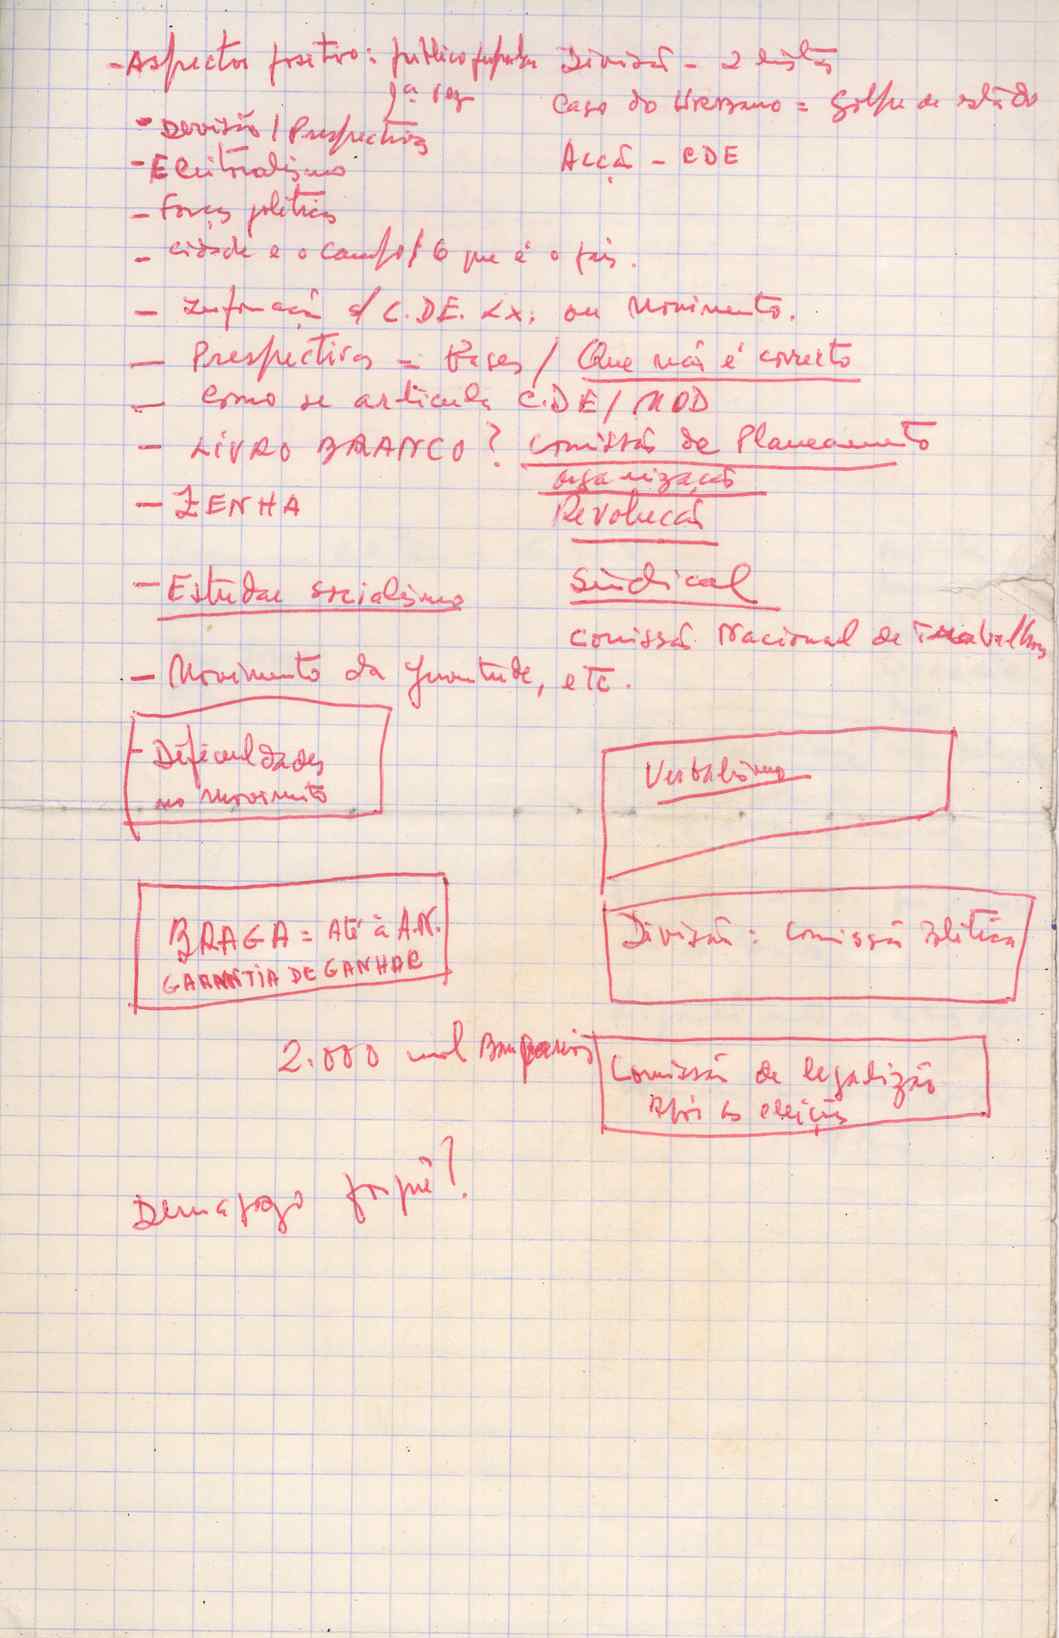 - Aspectos positivo: público popular
1ª vez
- Devisão / Prespectivas
- Eleitoralismo
- Forças políticas
- cidade e o campo / O que é o país.
Divisão - 2 listas
Caso do Urbano = golpe de estado
Acção - CDE
- Informação s/ C.D.E. Lx. ou Movimento.
- Prespectivas - Bases / Que não é correcto
- Como se articula C.D.E / MOD
- LIVRO BRANCO? Comissão de Planeamento
organização
- ZENHA Revolução
- Estudar socialismo Sindical
Comissão Nacional de Trabalho
- Movimento da Juventude, etc.
- Dificuldades
no movimento
Verbalismo
BRAGA = Até à A.N.
GARANTIA DE GANHAR
Divisão: Comissão Política
2.000 mil
Comissão de legalização
Após as eleições
Demagogo porquê?